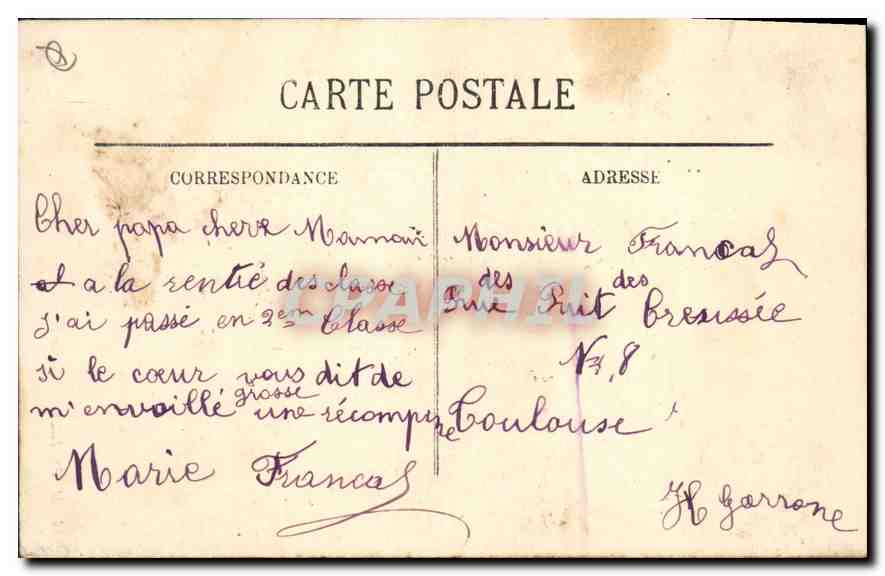 CARTE POSTALE
CORRESPONDANCE
Cher papa chere Maman
a la rentié des classe
j'ai passé en 2em Classe
si le cœur vous dit de
m'envoillé grosse une récompure
Marie Francal
ADRESSE
Monsieur Francal
des des
Rue Puit Creussée
Nr, 8
Toulouse
Hte Garrone
CPARHIL